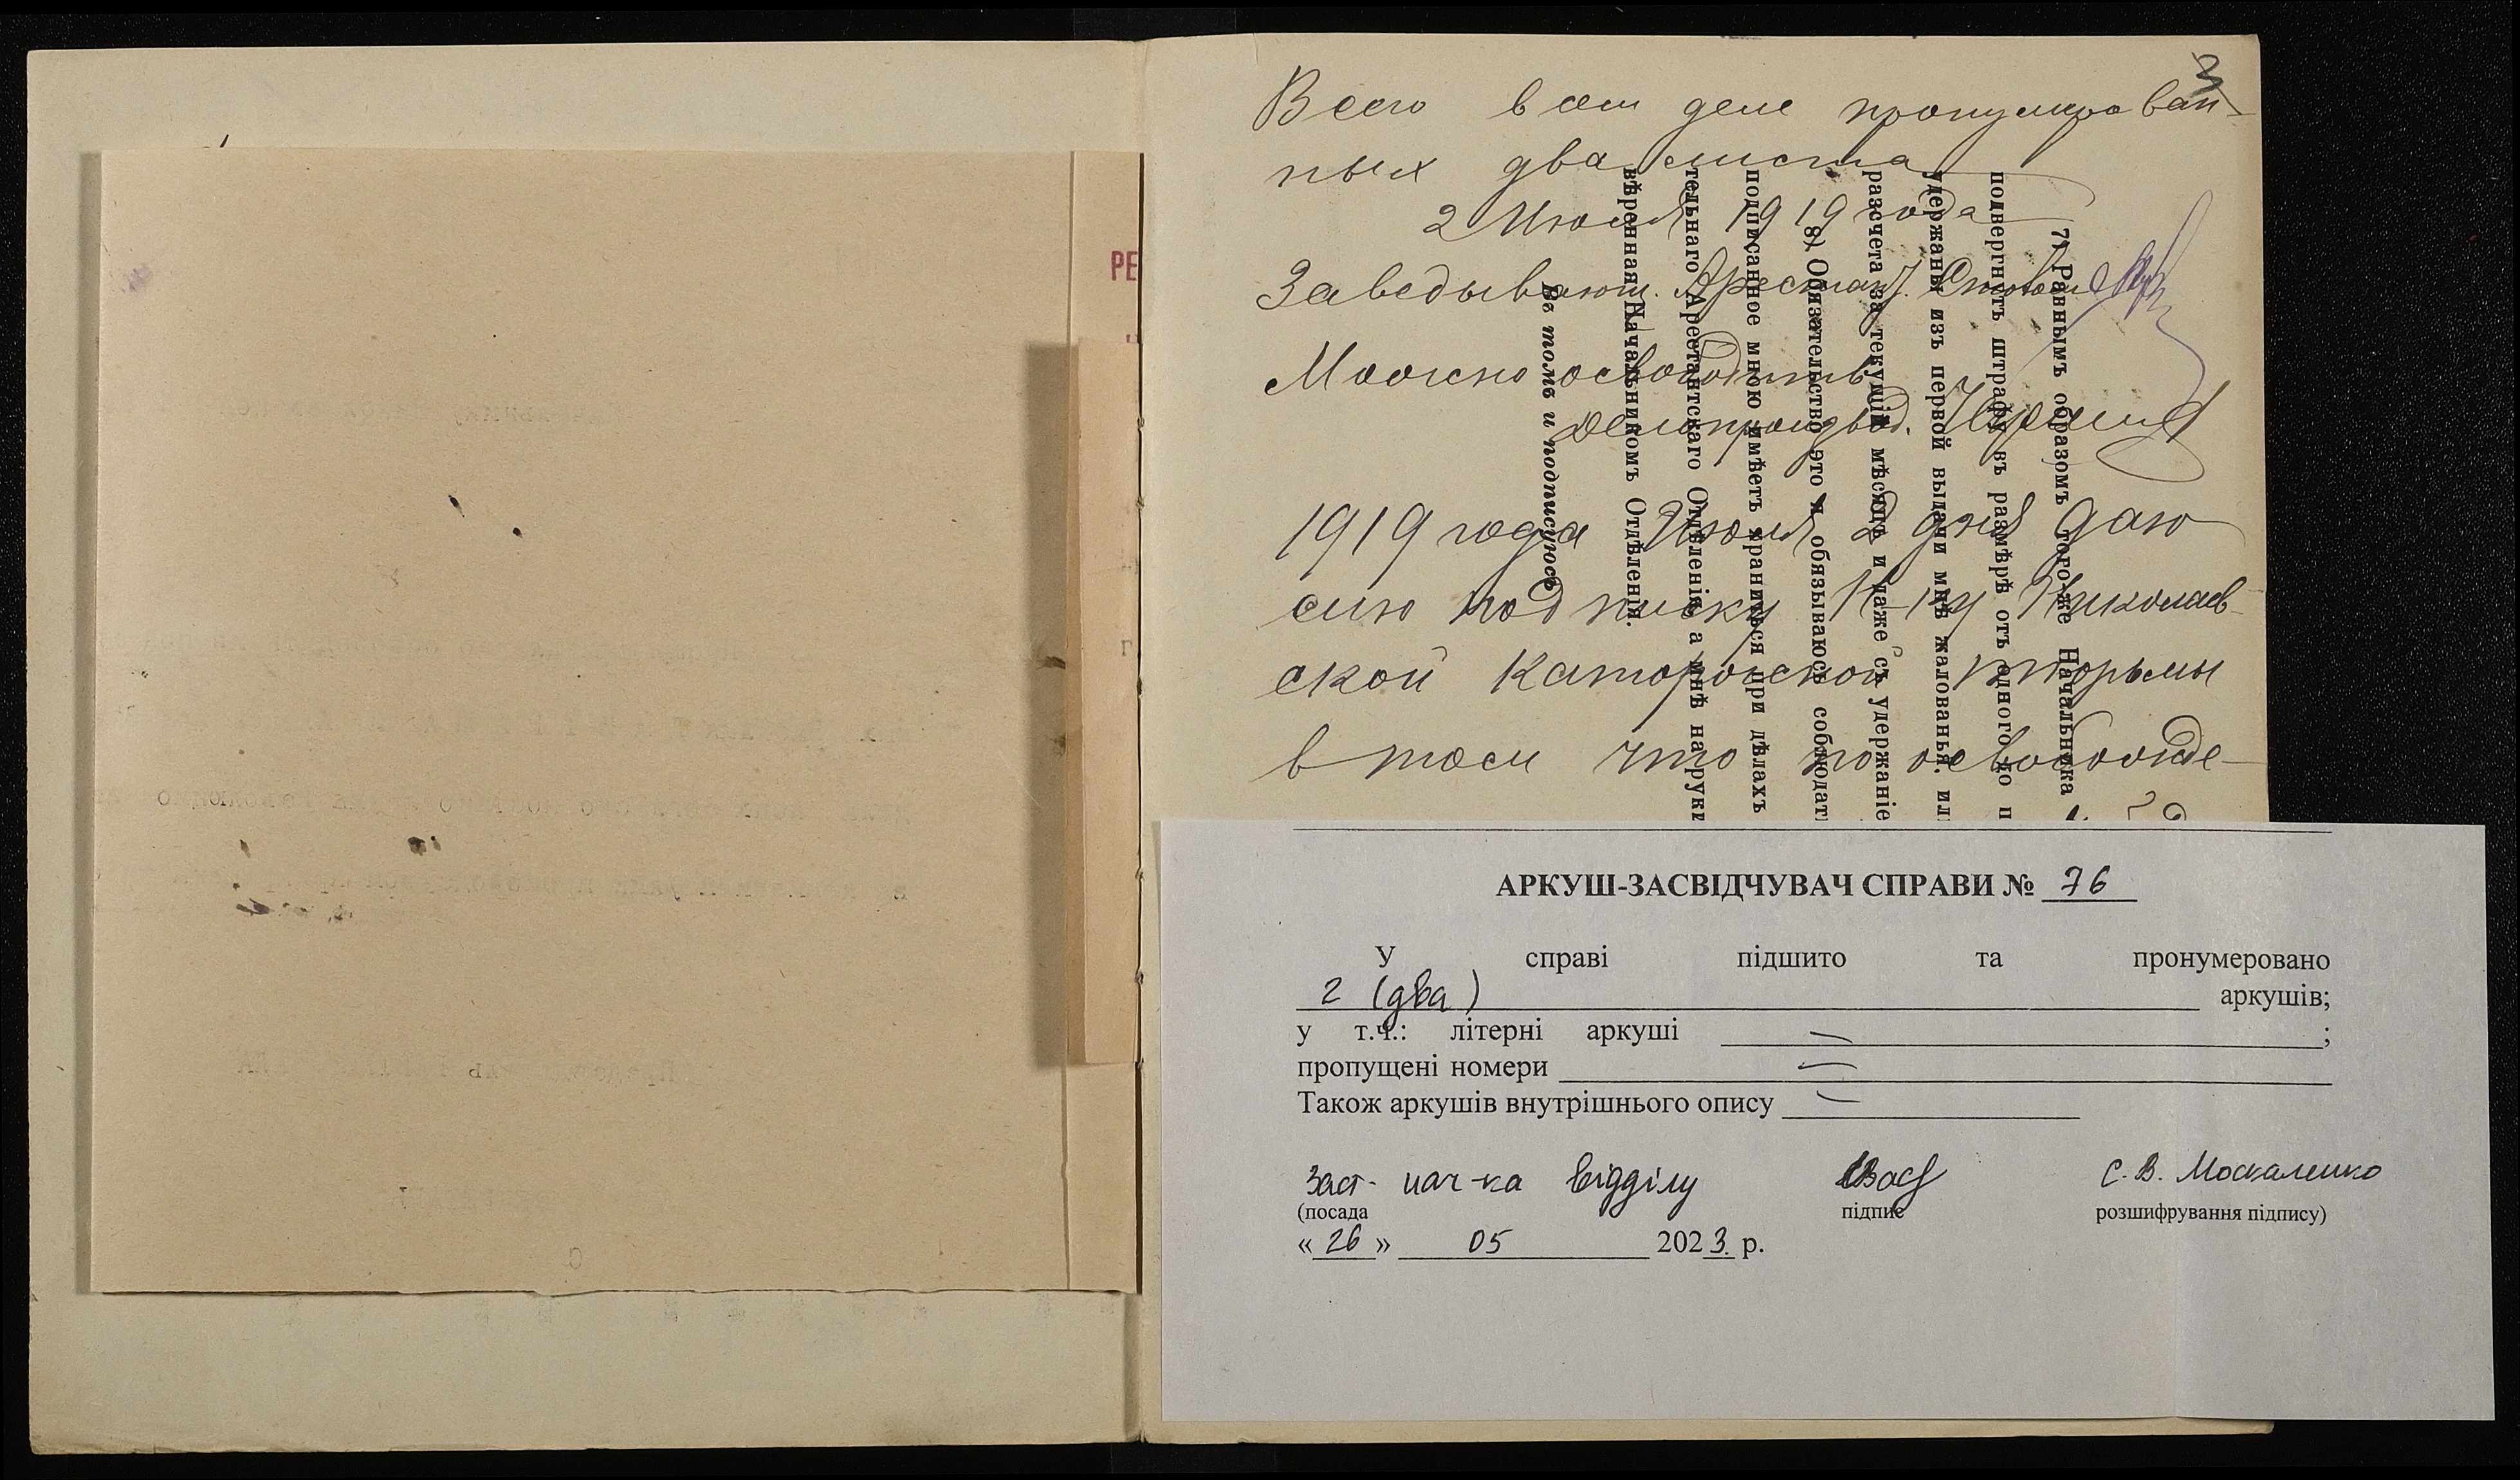 РЕ
3
Всего в сем деле пронумерован-
ных два листа
2 Июля 1919 года
Заведывающ. Арестан. Столом
Можно освободить
Делопроизвод.
1919 года Июля 2 дня даю
сию подписку Н-ку Николаев-
ской каторжской тюрьмы
в том что по освобожде-
7) Равнымъ образомъ того-же Начальника
подвергнуть штрафу въ размѣрѣ отъ одного до п
удержаны изъ первой выдачи мнѣ жалованья. ил
разсчета за текущій мѣсяцъ и даже съ удержаніе
8) Обязательство это я обязываюсь соблюдат
подписанное мною имѣетъ храниться при дѣлахъ
тельнаго Арестантскаго Отдѣленія, а мнѣ на руки
вѣренная Начальникомъ Отдѣленія.
Въ томъ и подписуюсь
АРКУШ-ЗАСВІДЧУВАЧ СПРАВИ № 76
У справі підшито та пронумеровано
2 (два) аркушів;
у т.ч.: літерні аркуші — ;
пропущені номери —
Також аркушів внутрішнього опису —
Заст. нач-ка відділу С.В. Москаленко
(посада підпис розшифрування підпису)
« 26 » 05 2023 р.